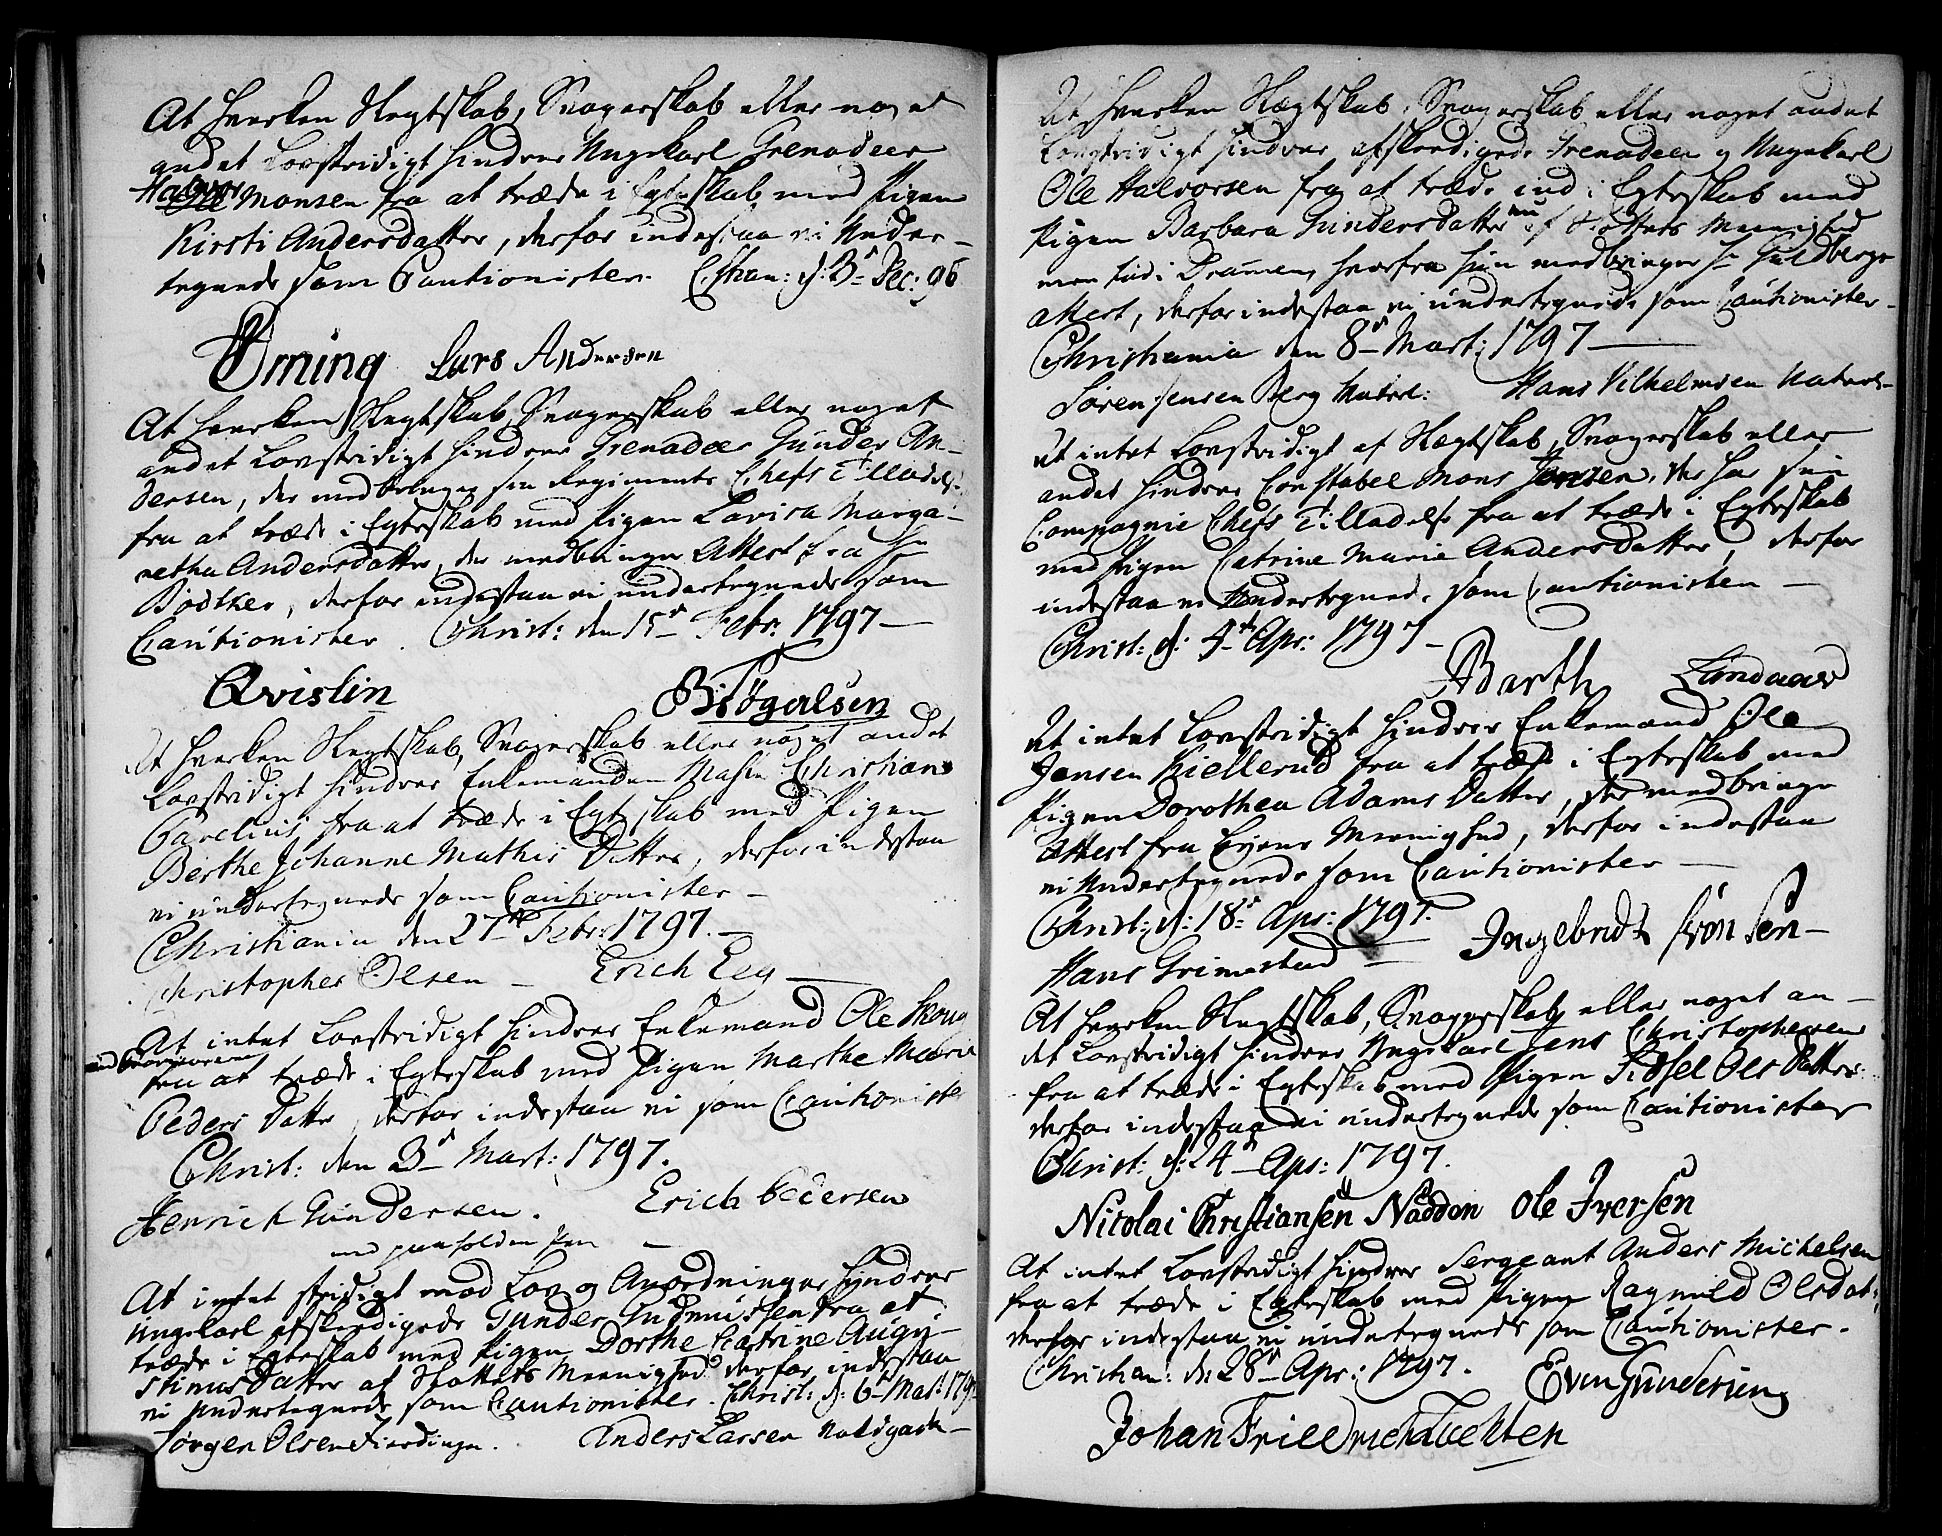 At hverken Slegtskab, Svogerskab eller noget
andet Lovstridigt hindrer Ungekarl Grenadeer
Halvor Monsen fra at træde i Egteskab med Pigen
Kirsti Andersdatter, derfor indestaa vi Under-
tegnede som Cautionister. Chan: d: 3d Dec: 96
Lars Andersen
At hverken Slegtskab, Svogerskab eller noget
andet Lovstridigt hindrer Grenadeer Gunder An-
dersen, der medbringer sin Regiments Chefs Tilladelse
fra at træde i Egteskab med Pigen Lovisa Marga-
retha Andersdatter, der medbringer Attest fra Hr
Bödtker, derfor indestaa vi undertegnede som
Cautionister. Christ: den 15d Febr: 1797
Qvislin
At hverken Slegtskab, Svogerskab eller noget andet
Lovstridigt hindrer Enkemanden Christian
Carelius fra at træde i Egteskab med Pigen
Berthe Johanne Mathis Datter, derfor indestaa
vi undertegnede som Cautionister
Christiania den 27de Febr: 1797.
Christopher Olsen Erich
At intet Lovstridigt hindrer Enkemand Ole Skoug
fra at træde i Egteskab med Pigen Marthe Maria
Peders Datter, derfor indestaa vi som Cautionister
Christ: den 3d Mart: 1797.
Henrich Gundersen. Erich Pedersen
med paaholden Pen
At intet stridigt mod Lov og Anordninger hindrer
Ungekarl afskedigede Gunder Gudmussen fra at
træde i Egteskab med Pigen Dorthe Catrine Augu-
stinus Datter af Slottets Meenighed derfor indestaa
vi Undertegnede som Cautionister. Christ: d: 6d Mart: 1797
Jörgen Olsen Anders Larsen
At hverken Slægtskab, Svogerskab eller noget andet
Lovstridigt hindrer afskedigede Grenadeer og Ungekarl
Ole Halvorsen fra at træde ind i Egteskab med
Pigen Barbara Gundersdatter nu af Slottets Menighed
men før i Dramen, hvorfra hun medbringer Hr Guldbergs
attest, derfor indestaa vi undertegnede som Cautionister.
Christiania den 8d Mart: 1797
Sören Jensen Berg Hans Vilhelmsen
At intet Lovstridigt af Slægtskab, Svogerskab eller
andet hindrer Constabel Mons Jensen, der har sin
Compagnie Chefs Tilladelse fra at træde i Egteskab
med Pigen Catrine Marie Andersdatter, derfor
indestaa vi Undertegnede som Cautionister
Christ: d: 4de Apr: 1797
Barth
At intet Lovstridigt hindrer Enkemand Ole
Jensen Kiellerud fra at træde i Egteskab med
Pigen Dorothea Adams Datter, der medbringer
Attest fra Meenighed, derfor indestaa
vi Undertegnede som Cautionister
Christ: d: 18d Apr: 1797.
Hans Grimestad Ingebridt
At hverken Slegtskab, Svogerskab eller noget an-
det Lovstridigt hindrer Ungekarl Jens Christophersen
fra at træde i Egteskab med Pigen Sidsel Ols Datter
derfor indestaa vi undertegnede som Cautionister
Christ: d: 24d Apr: 1797.
Nicolai Christiansen Naddon Ole Iversen
At intet Lovstridigt hindrer Sergeant Anders Michelsen
fra at træde i Egteskab med Pigen Ragnild Olsdat:
derfor indestaa vi undertegnede som Cautionister.
Christian: den 28d Apr: 1797.
Johan Friedrich